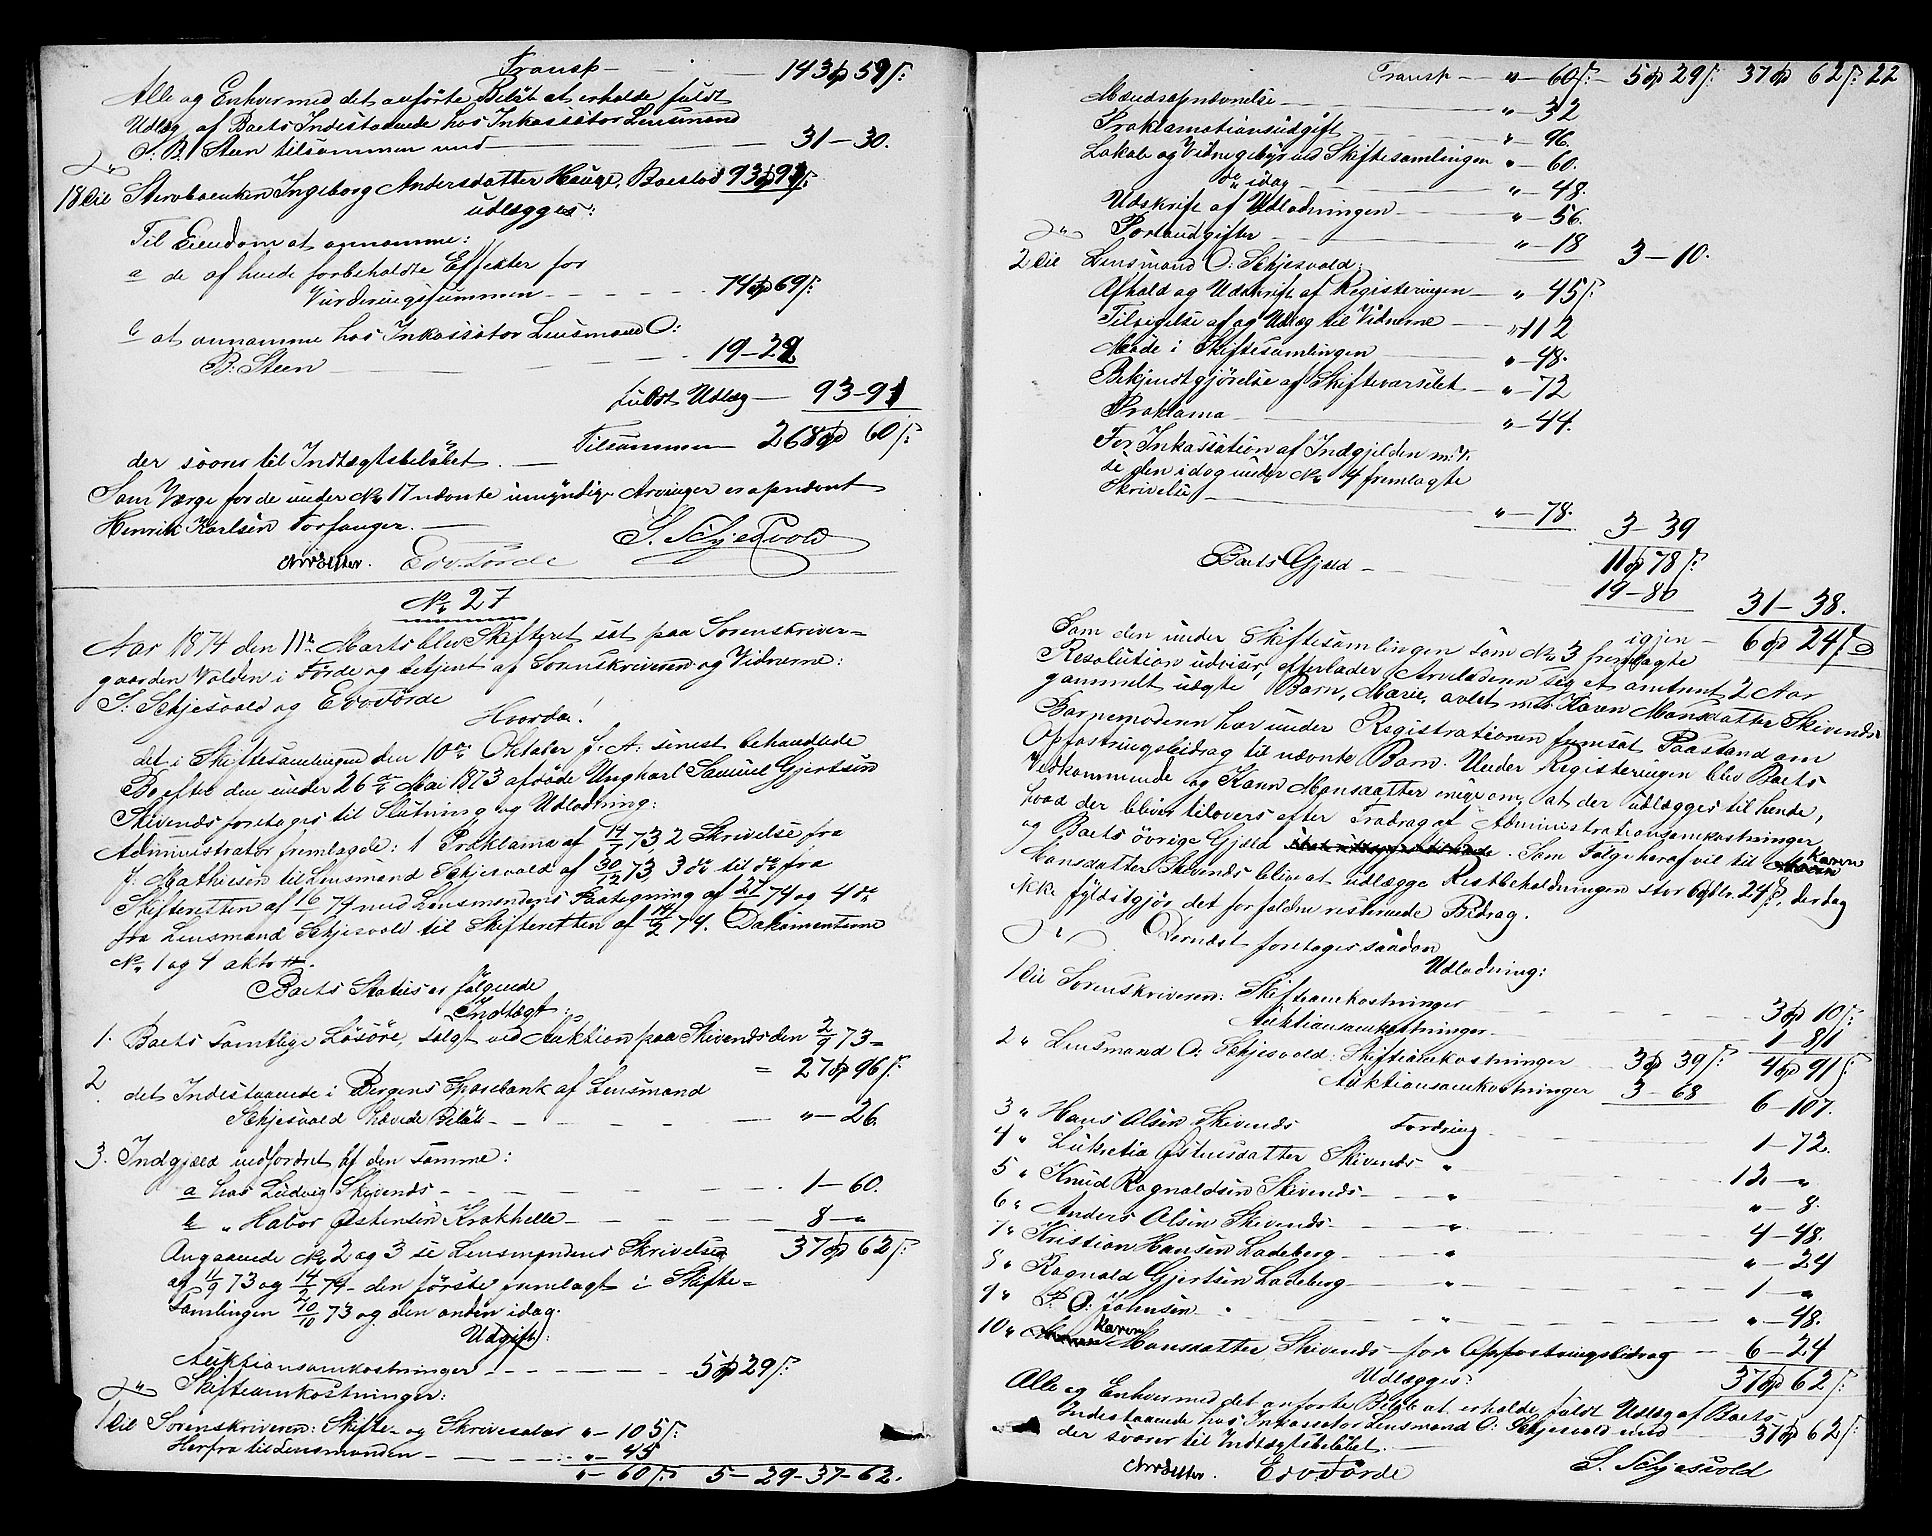 Transp — 143 59 ß:
Alle og Enhver med det anförte Belöb at erholde fuldt
Udlæg af Boets Indestaaende hos Inkassator Lensmand
O. B. Steen tilsammen med — 31 – 30.
18 til Stervboenken Ingeborg Andersdatter Hauge, Boeslod 93 91 ß:
udlægges:
Til Eiendom at annamme:
a de af hende forbeholdte Effekter for
Vurderingssummen — 74 69 ß:
b at annamme hos Inkassator Lensmand O:
B: Steen — 19 – 22
fuldt Udlæg — 93 – 91
Tilsammen 268 60 ß:
der svarer til Indtægtsbelöbet. —
Som Værge for de under No 17 nævnte umyndige Arvinger er opnævnt
Henrik Karlsen Torfanger. —
S. Schjesvold
E. v. Förde
No 27
Aar 1874 den 11te Marts blev Skifteret sat paa Sorenskriver-
gaarden Volden i Förde og betjent af Sorenskriveren og Vidnerne:
S. Schjesvold og E. v. Förde
Hvorda!
det i Skiftesamlingen den 10de Oktober f. A. sidst behandlede
Bo efter den under 26de Mai 1873 afdöde Ungkarl Samuel Gjertsen
Skivenes foretages til Slutning og Udlodning:
Administrator fremlagde: 1 Proklama af 14/7 73 2 Skrivelse fra
J. Mathiesen til Lensmand Schjesvold af 30/12 73 3 do til do fra
Skifteretten af 16/1 74 med Lensmandens Paategning af 27/1 74 og 4 do
fra Lensmand Schjesvold til Skifteretten af 14/2 74. Dokumenterne
No 1 og 4 akto tt.
Boets Status er fölgende
Indtægt:
1. Boets samtlige Lösöre, solgt ved Auktion paa Skivenes den 2/9 73 –
= 27 96 ß:
2. det Indestaaende i Bergens Sparebank af Lensmand
Schjesvold hævede Belöb — " – 26.
3. Indgjæld indfordret af den samme:
a hos Ludvig Skivenes — 1 – 60.
b " Habor Östensen Krakhelle — 8 – "
Angaaende No 2 og 3 se Lensmandens Skrivelser 37 62 ß:
af 11/9 73 og 14/2 74 – den förste fremlagt i Skifte-
samlingen 10/10 73 og den anden idag.
Udgift:
Auktionsomkostninger — 5 29 ß:
Skifteomkostninger:
1 til Sorenskriveren: Skifte- og Skrivesalær " – 105 ß:
Herfra til Lensmanden — " – 45
" – 60 ß: 5 – 29 – 37 – 62.
Transp — " – 60 ß: 5 29 ß: 37 62 ß: 22
Mændsopnævnelse — " – 32
Proklamationsudgift — " – 96.
Lokale og Vidnegebyr ved Skiftesamlingen " – 60.
do idag — " – 48.
Udskrift af Udlodningen — " – 56.
Portoudgifter — " – 18 3 – 10.
2 til Lensmand O: Schjesvold:
Afhold og Udskrift af Registeringen — " – 45 ß:
Tilsigelse af og Udlæg til Vidnerne — " 112
Möde i Skiftesamlingen — " – 48.
Bekjendtgjörelse af Skiftevarselet — " – 72
Proklama — " – 44.
For Inkassation af Indgjelden m. V.
se den idag under No 4 fremlagte
Skrivelse — " – 78. 3 – 39
11 78 ß:
Boets Gjæld — 19 – 80 31 – 38.
igjen — 6 24 ß:
Som den under Skiftesamlingen som No 3 fremlagte
Resolution udviser, efterlader Arveladeren sig et omtrent 2 Aar
gammelt uægte Barn, Marie, avlet med Karen Monsdatter Skivenes.
Barnemoderen har under Registrationen fremsat Paastand om
Opfostringsbidrag til nævnte Barn. Under Registeringen blev Boets
Vedkommende og Karen Monsdatter enige om, at der udlægges til hende,
hvad der bliver tilovers efter Fradrag af Administrationsomkostninger
og Boets övrige Gjæld. Som Fölge heraf vil til Karen
Monsdatter Skivenes blive at udlægge Restbeholdningen stor 6 Spdlr. 24 ß, der dog
ikke fyldestgjör det forfaldne resterende Bidrag.
Dernæst foretages saadan
Udlodning:
1 til Sorenskriveren: Skifteomkostninger — 3 10 ß:
Auktionsomkostninger — 1 – 81
2 " Lensmand O: Schjesvold: Skifteomkostninger 3 39 ß: 4 91 ß:
Auktionsomkostninger 3 – 68 6 – 107.
3 " Hans Olsen Skivenes Fordring — 1 – 72.
4 " Lukretia Östensdatter Skivenes " 12 – "
5 " Knud Ragnaldsen Skivenes — " " – 8.
6 " Anders Olsen Skivenes — " 4 – 48.
7 " Kristian Hansen Ladeberg — " " – 24
8 " Ragnald Gjertsen Ladeberg — " 1 – "
9 " P. O: Johnsen — " " – 48.
10 " Karen Monsdatter Skivenes – for Opfostringsbidrag — 6 – 24
Udlægges: 37 62 ß:
Alle og Enhver med det anförte Belöb at erholde fuldt Udlæg af Boets
Indestaaende hos Inkassator Lensmand O: Schjesvold med — 37 62 ß:
der svarer til Indtægtsbelöbet. —
E. v. Förde S. Schjesvold